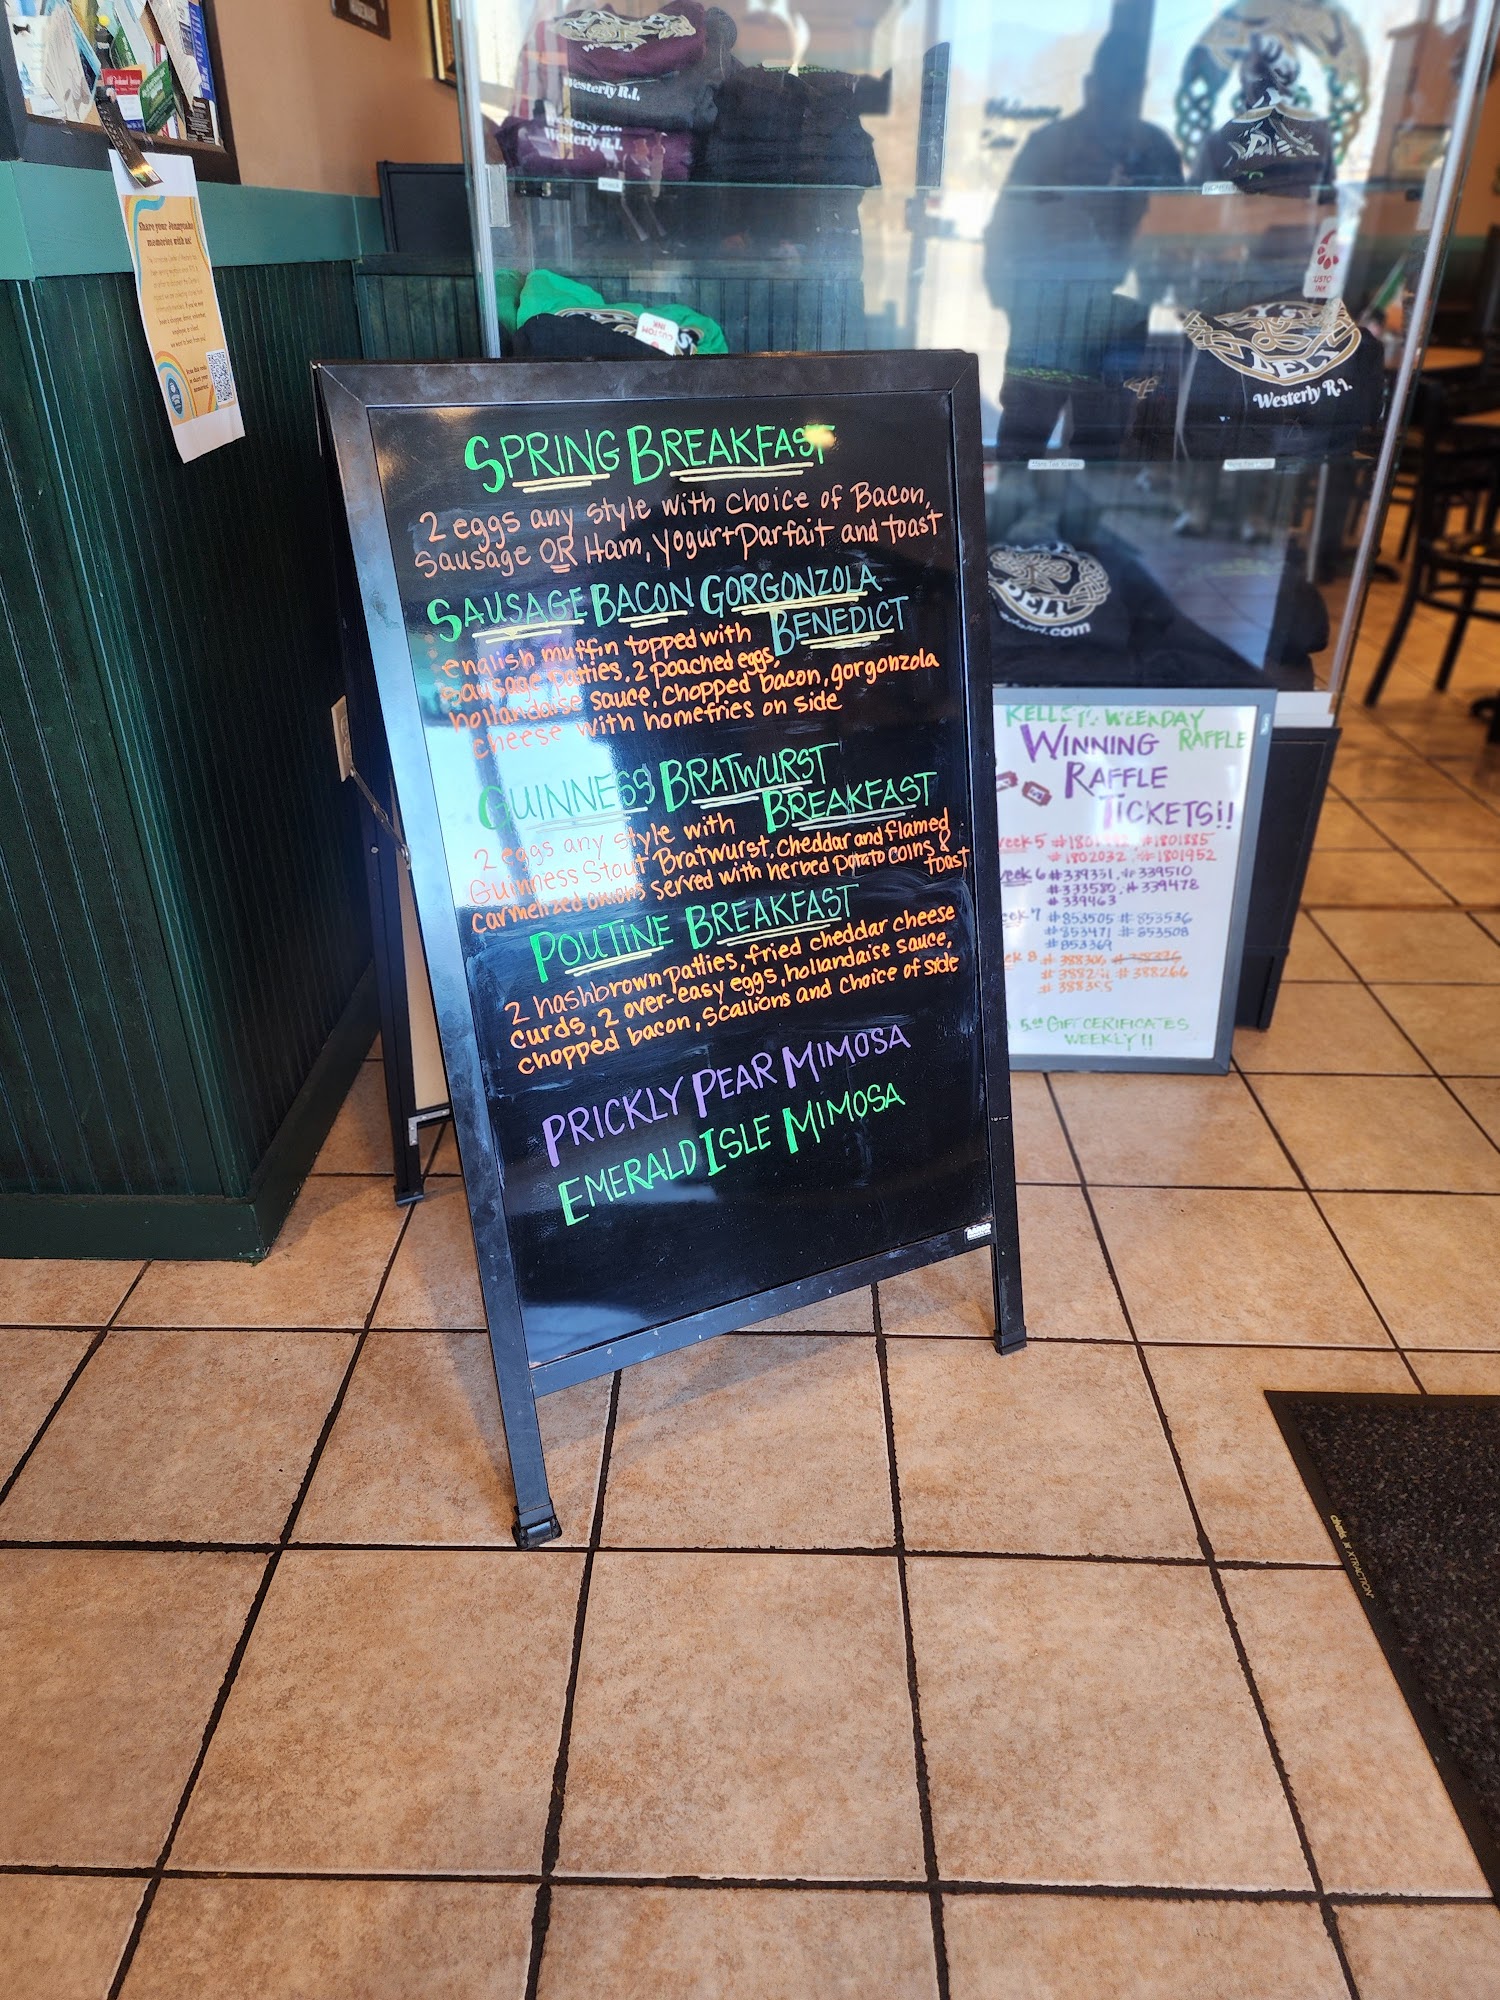 Westerly R.I.
Westerly R.I.
Westerly R.I.
Share your Jonnycake
memories with us!
CUSTOM
INK
DELI
Westerly R.I.
DELI
SPRING BREAKFAST
2 eggs any style with choice of Bacon,
Sausage OR Ham, Yogurt Parfait and toast
SAUSAGE BACON GORGONZOLA
BENEDICT
english muffin topped with
sausage patties, 2 poached eggs,
hollandaise sauce, chopped bacon, gorgonzola
cheese with homefries on side
GUINNESS BRATWURST
BREAKFAST
2 eggs any style with
Guinness Stout Bratwurst, cheddar and flamed
carmelized onions served with herbed potato coins &
toast
POUTINE BREAKFAST
2 hashbrown patties, fried cheddar cheese
curds, 2 over-easy eggs, hollandaise sauce,
chopped bacon, scallions and choice of side
PRICKLY PEAR MIMOSA
EMERALD ISLE MIMOSA
WEEKDAY
WINNING RAFFLE
RAFFLE
TICKETS!!
#1801885
#1802032 #1801952
#339331, #339510
#333580, #339478
#339463
#853505 #853536
#853471 #853508
#853369
#388266
GIFT CERIFICATES
WEEKLY!!
XTRACTION